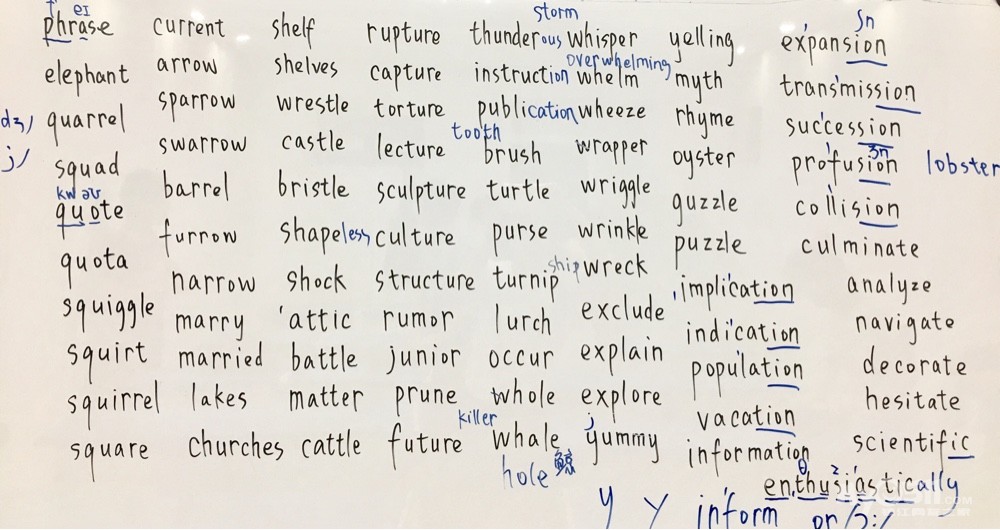 phrase current shelf rupture thunderous whisper yelling expansion
elephant arrow shelves capture instruction whelm myth transmission
quarrel sparrow wrestle torture publication wheeze rhyme succession
squad swarrow castle lecture brush wrapper oyster profusion lobster
quote barrel bristle sculpture turtle wriggle guzzle collision
quota furrow shapeless culture purse wrinkle puzzle culminate
squiggle narrow shock structure turnip wreck implication analyze
squirt marry 'attic rumor lurch exclude indication navigate
squirrel married battle junior occur explain population decorate
square lakes matter prune whole explore vacation hesitate
churches cattle future whale yummy information scientific
eɪ
storm
ʃn
overwhelming
dʒ/
j/
tooth
ʒn
kw əʊ
ship
killer
j
hole 鲸
θ
enthusiastically
y Y inform or/ɔ:/